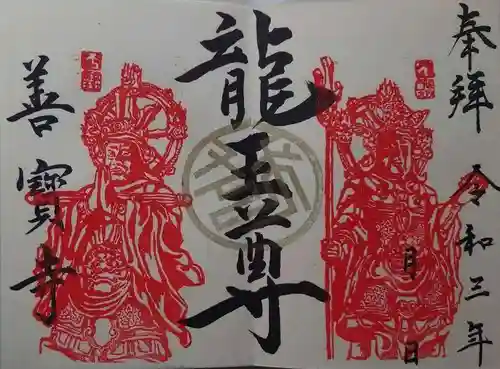 奉拝 令和三年
月 日
龍王尊
善寳寺